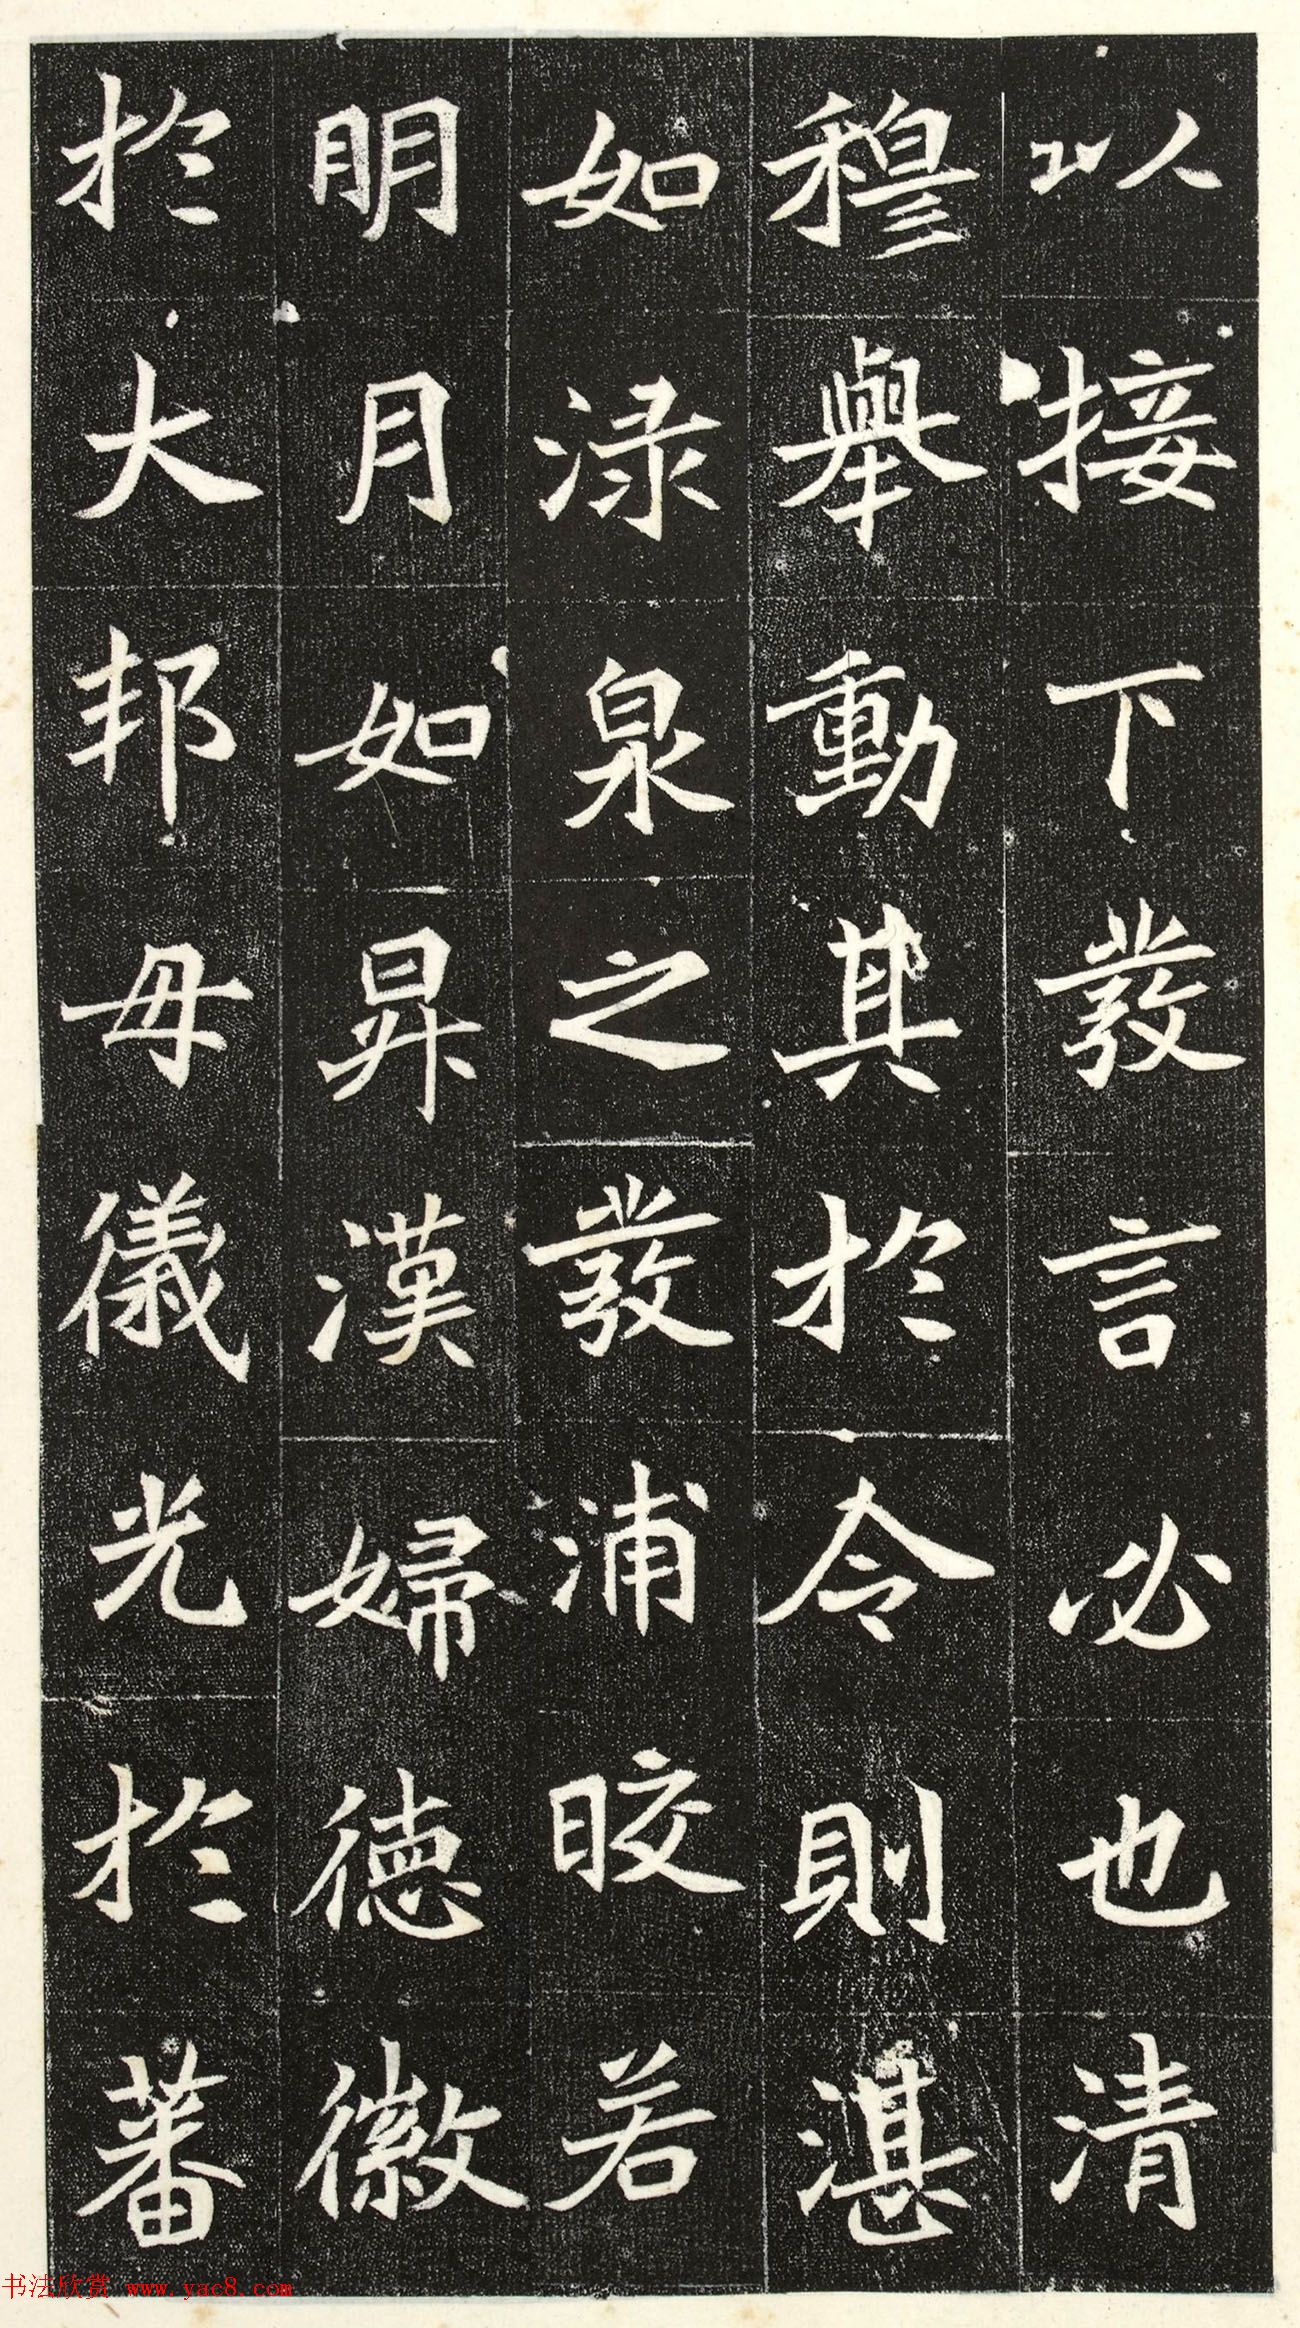 以接下發言必也清
穆舉動其於令則湛
如渌泉之發浦晈若
明月如昇漢婦德徽
於大邦母儀光於蕃
书法欣赏 www.yac8.com